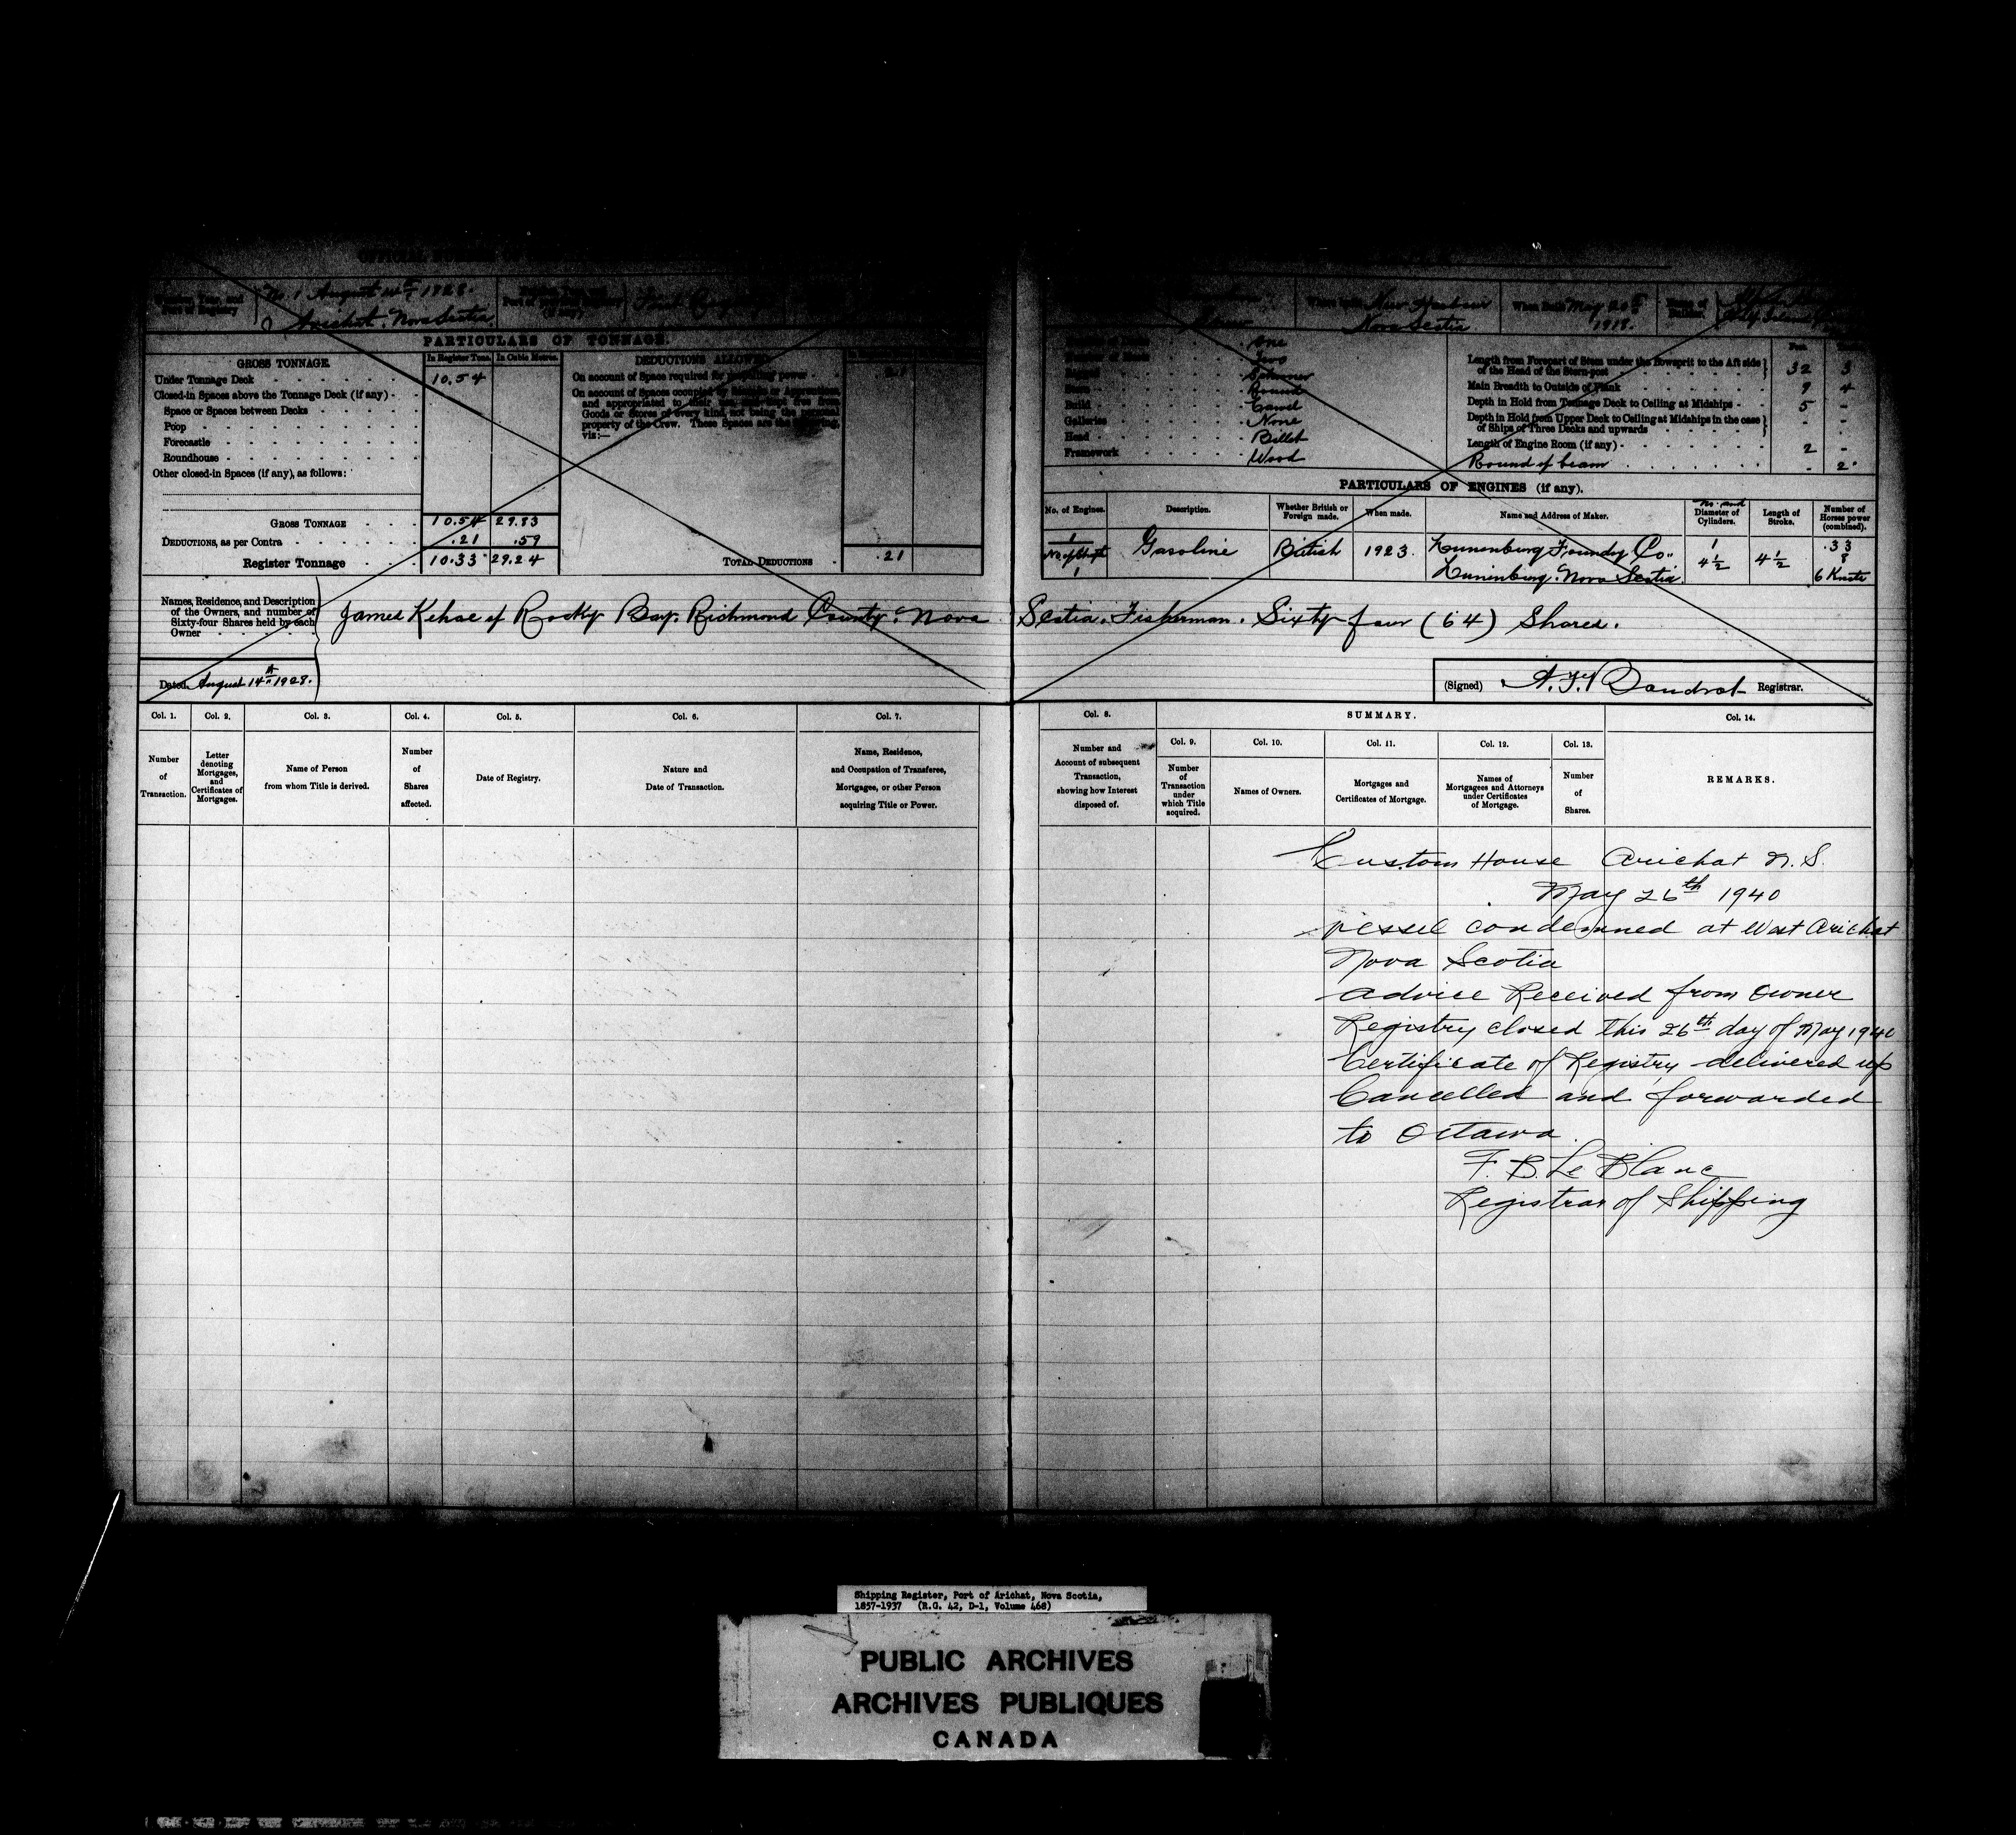 No. 1 August 14th 1928.
Arichat. Nova Scotia.
Port of Registry
First Registry
Where built New Harbour
Nova Scotia
When Built May 20th
1918.
PARTICULARS OF TONNAGE.
GROSS TONNAGE. In Register Tons. In Cubic Metres. DEDUCTIONS ALLOWED.
Under Tonnage Deck 10.54
On account of Space required for propelling power .21
Closed-in Spaces above the Tonnage Deck (if any)
Space or Spaces between Decks
Poop
Forecastle
Roundhouse
Other closed-in Spaces (if any), as follows:
On account of Spaces occupied by
and appropriated to their use, and kept free from
Goods or Stores of every kind, not being the personal
property of the Crew. These Spaces are the following,
viz:—
GROSS TONNAGE 10.54 29.83
DEDUCTIONS, as per Contra .21 .59
Register Tonnage 10.33 29.24
TOTAL DEDUCTIONS .21
One
Two
Schooner
Stern Round
Build Carvel
Galleries None
Head Billet
Framework Wood
Length from Forepart of Stem under the Bowsprit to the Aft side
of the Head of the Stern-post 32 3
Main Breadth to Outside of Plank 9 4
Depth in Hold from Tonnage Deck to Ceiling at Midships 5 -
Depth in Hold from Upper Deck to Ceiling at Midships in the case
of Ships of Three Decks and upwards - -
Length of Engine Room (if any) 2 -
Round of beam - 2
PARTICULARS OF ENGINES (if any).
No. of Engines. Description. Whether British or Foreign made. When made. Name and Address of Maker. No. and Diameter of Cylinders. Length of Stroke. Number of Horses power (combined).
1 Gasoline British 1923. Lunenburg Foundry Co. 1 .33
No of Shafts 4½ 4½ 8
1 Lunenburg. Nova Scotia. 6 Knots
Names, Residence, and Description
of the Owners, and number of
Sixty-four Shares held by each
Owner
James Kehoe of Rocky Bay. Richmond County. Nova Scotia. Fisherman. Sixty four (64) Shares.
Dated August 14th 1928.
(Signed) Registrar.
Col. 1. Col. 2. Col. 3. Col. 4. Col. 5. Col. 6. Col. 7.
Number of Transaction.
Letter denoting Mortgages, and Certificates of Mortgages.
Name of Person from whom Title is derived.
Number of Shares affected.
Date of Registry.
Nature and Date of Transaction.
Name, Residence, and Occupation of Transferee, Mortgagee, or other Person acquiring Title or Power.
Col. 8. SUMMARY. Col. 14.
Col. 9. Col. 10. Col. 11. Col. 12. Col. 13.
Number and Account of subsequent Transaction, showing how Interest disposed of.
Number of Transaction under which Title acquired.
Names of Owners.
Mortgages and Certificates of Mortgage.
Names of Mortgagees and Attorneys under Certificates of Mortgage.
Number of Shares.
REMARKS.
Custom House Arichat N.S.
May 26th 1940
vessel condemned at West Arichat
Nova Scotia
advise Received from Owner
Registry closed this 26th day of May 1940
Certificate of Registry delivered up
Cancelled and forwarded
to Ottawa.
F. B. Le Blanc
Registrar of Shipping
Shipping Register, Port of Arichat, Nova Scotia,
1857-1937 (R.G. 42, D-1, Volume 468)
PUBLIC ARCHIVES
ARCHIVES PUBLIQUES
CANADA